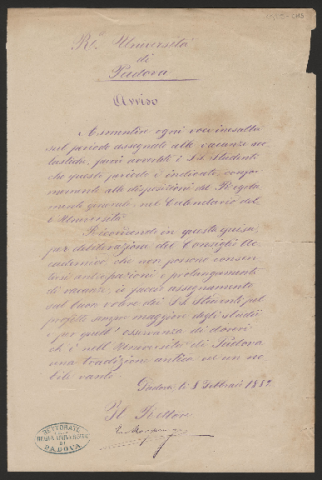 R. Università
di
Padova
Avviso
A smentire ogni voce inesatta
sul periodo assegnato alle vacanze sco-
lastiche, sono avvertiti i S.i studenti
che questo periodo è indicato, confor-
memente alle disposizioni del Regola-
mento generale, nel Calendario del-
l'Università
Ricordando in questa guisa,
per deliberazione del Consiglio Ac-
cademico che non possono consen-
tirsi anticipazioni o prolungamenti
di vacanze, si fa assegnamento
sul buon volere dei S.i Studenti pel
profitto sempre maggiore degli studii
e per quell'osservanza di doveri
ch'è nell'Università di Padova
una tradizione antica ed un no-
bile vanto.
Padova, li 8 Febbraio 1882
Il Rettore
RETTORATO
REGIA UNIVERSITÀ
DI
PADOVA